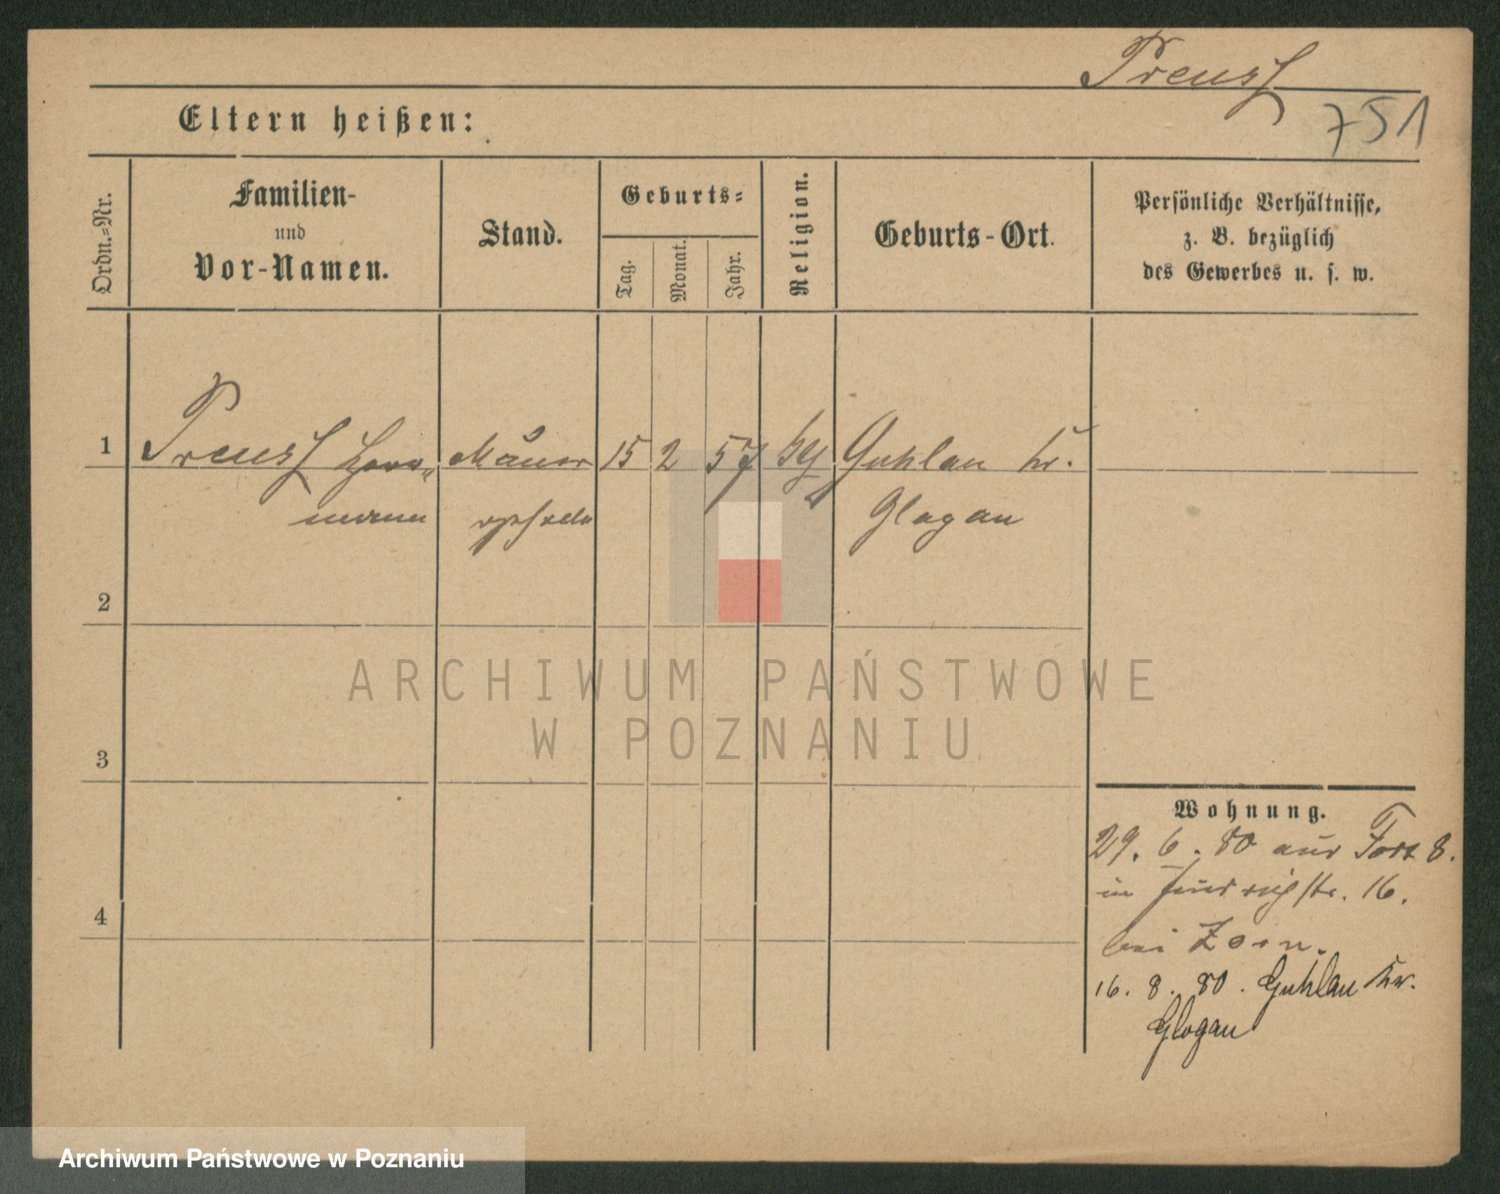 Preusz
751
Eltern heißen:
Ordn.-Nr.
Familien-
und
Vor-Namen.
Stand.
Geburts-
Tag.
Monat.
Jahr.
Religion.
Geburts-Ort.
Persönliche Verhältnisse,
z. B. bezüglich
des Gewerbes u. s. w.
1 Preusz Herr- Mauer 15 2 57 Guhlau Kr.
mann Glogau
2
3
4
ARCHIWUM PAŃSTWOWE
W POZNANIU
Wohnung.
29. 6. 80 aus Fort 8.
in str. 16.
bei
16. 8. 80. Guhlau Kr.
Glogau
Archiwum Państwowe w Poznaniu